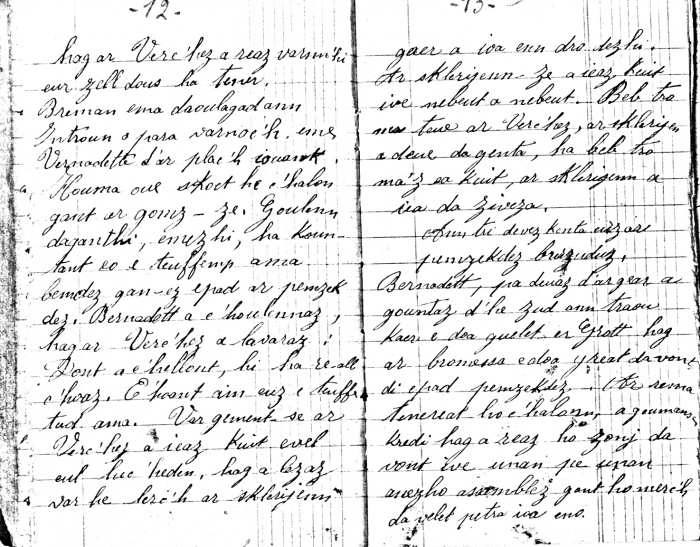 -12-
hag ar Verc'hez a reaz varnn'hi
eur zell dous ha tener.
Breman ema daoulagad ann
Introun o para varnoc'h, eme
Vernadetta d'ar plac'h iouank.
Houma oue skoet he c'halon
gant ar gomz-ze. Goulenn
daganthi, emezhi, ha koun-
tant eo e teuffemp ama
bemdez gan-ez epad ar pemzek
dez. Bernadett a c'houlennaz,
hag ar Verc'hez a lavaraz :
Dont a c'hellont, hi ha re-all
c'hoaz. C'hoant am euz e teuffe
tud ama. Var gement-se ar
Verc'hez a ieaz kuit evel
eul luc'heden, hag a lezaz
var he lerc'h ar sklerijenn
-13-
gaer a ioa enn dro dezhi.
Ar sklerijenn-ze a ieaz kuit
ive nebeut a nebeut. Beb tro
ma teue ar Verc'hez, ar sklerijen
a deue da genta, ha beb tro
ma'z ea kuit, ar sklerijenn a
iea da ziveza.
Ann tri devez kenta euz ar
pemzekdez burzudus.
Bernadett, pa deuaz d'ar gear a
gountaz d'he zud ann traou
kaer e doa guelet er Grott hag
ar bromessa e doa great da vont
di epad pemzekdez. Ar re-ma
tenereat ho c'haloun, a goumans
kredi hag a reaz ho zonj da
vont ive unan pe unan
anezho assemblez gant ho merc'h
da velet petra ioa eno.